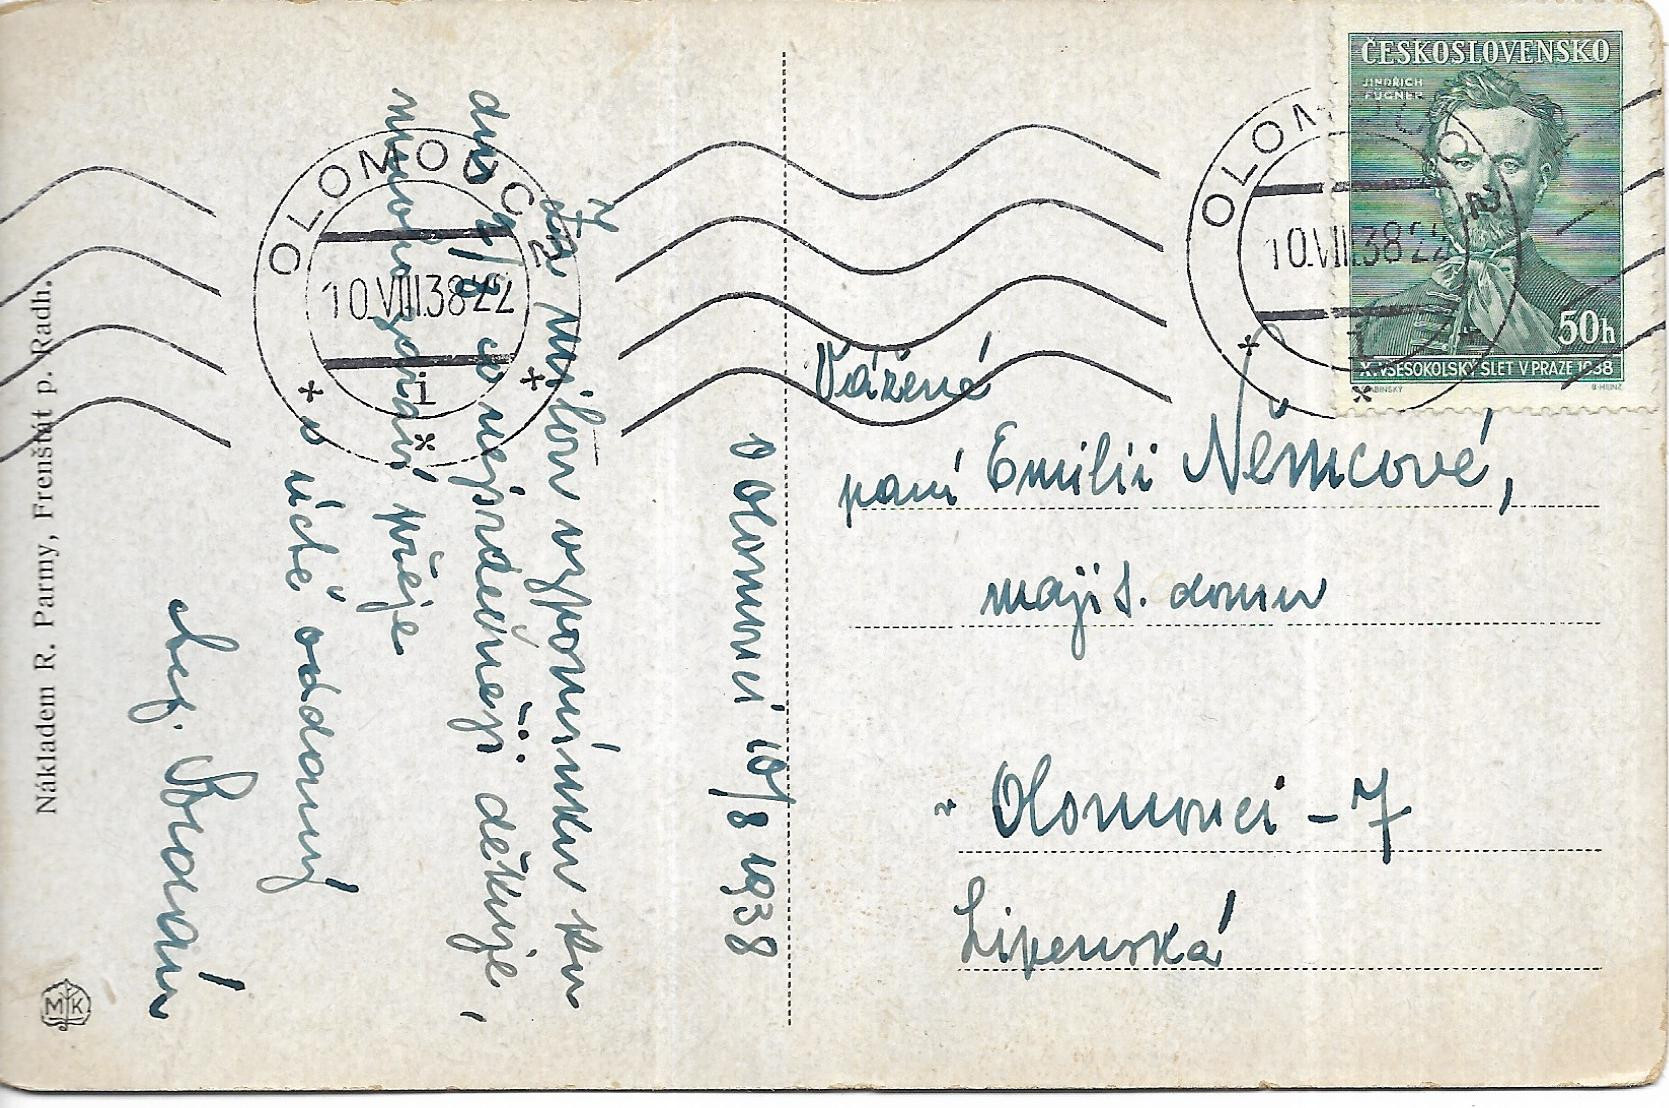 Nákladem R. Parmy, Frenštát p. Radh.
MK
v Olomouci 10/8 1938
Za milou vzpomínku ku
dnu 9/8 co nejsrdečněji děkuje,
mnoho zdraví přeje
v úctě oddaný
OLOMOUC 2
10.VIII.38 22
1
OLOMOUC 2
10.VIII.38 22
ČESKOSLOVENSKO
JINDŘICH
FÜGNER
50h
X. VŠESOKOLSKÝ SLET V PRAZE 1938
Vážené
paní Emilii Němcové,
majit. domu
v Olomouci – 7
Lipenská